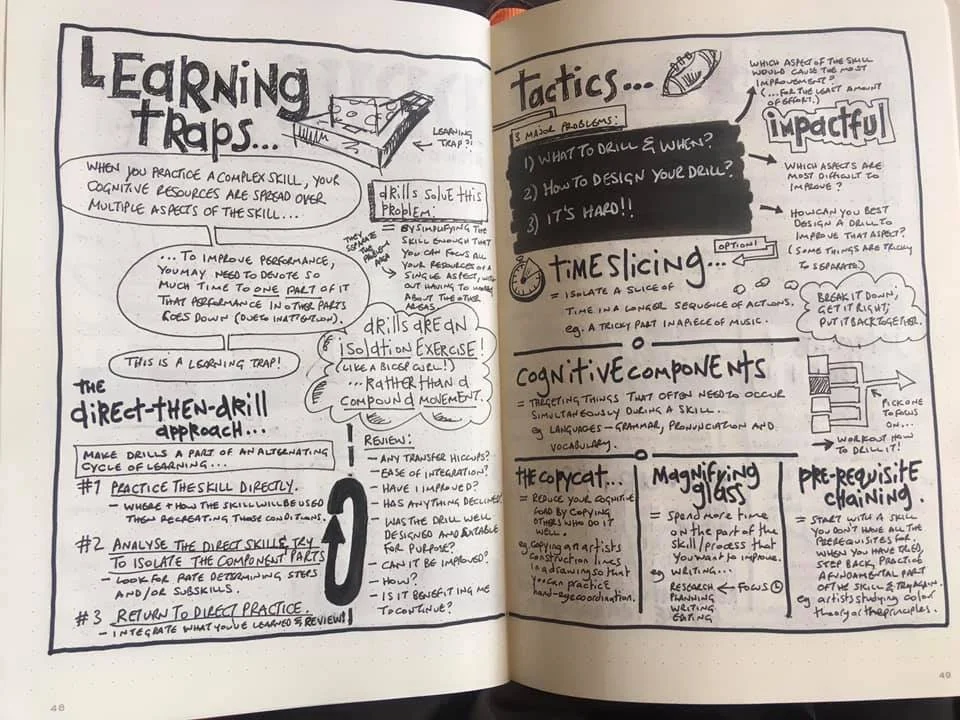 LEARNING
TRAPS...
LEARNING
TRAP?!
WHEN YOU PRACTICE A COMPLEX SKILL, YOUR
COGNITIVE RESOURCES ARE SPREAD OVER
MULTIPLE ASPECTS OF THE SKILL...
... TO IMPROVE PERFORMANCE,
YOU MAY NEED TO DEVOTE SO
MUCH TIME TO ONE PART OF IT
THAT PERFORMANCE IN OTHER PARTS
GOES DOWN (DUE TO INATTENTION)
THIS IS A LEARNING TRAP!
drills SOLVE THIS
PROBLEM.
= BY SIMPLIFYING THE
SKILL ENOUGH THAT
YOU CAN FOCUS ALL
YOUR RESOURCES ON A
SINGLE ASPECT, WITH
OUT HAVING TO WORRY
ABOUT THE OTHER
AREAS.
THEY
SEPARATE
THE
PROBLEM
AREA
drills are an
isolation EXERCISE!
(LIKE A BICEP CURL!)
... RATHER THAN a
COMPOUND MOVEMENT.
THE
direct-then-drill
approach...
MAKE DRILLS A PART OF AN ALTERNATING
CYCLE OF LEARNING...
#1 PRACTICE THE SKILL DIRECTLY.
- WHERE + HOW THE SKILL WILL BE USED
THEN RECREATING THOSE CONDITIONS.
#2 ANALYSE THE DIRECT SKILL & TRY
TO ISOLATE THE COMPONENT PARTS
- LOOK FOR RATE DETERMINING STEPS
AND/OR SUBSKILLS.
#3 RETURN TO DIRECT PRACTICE.
- INTEGRATE WHAT YOU'VE LEARNED & REVIEW!
REVIEW:
- ANY TRANSFER HICCUPS?
- EASE OF INTEGRATION?
- HAVE I IMPROVED?
- HAS ANYTHING DECLINED?
- WAS THE DRILL WELL
DESIGNED AND SUITABLE
FOR PURPOSE?
- CAN IT BE IMPROVED?
- HOW?
- IS IT BENEFITING ME
TO CONTINUE?
48
tactics...
3 MAJOR PROBLEMS:
1) WHAT TO DRILL & WHEN?
2) HOW TO DESIGN YOUR DRILL?
3) IT'S HARD!!
WHICH ASPECT OF THE SKILL
WOULD CAUSE THE MOST
IMPROVEMENT?
(...FOR THE LEAST AMOUNT
OF EFFORT.)
impactful
WHICH ASPECTS ARE
MOST DIFFICULT TO
IMPROVE?
HOW CAN YOU BEST
DESIGN A DRILL TO
IMPROVE THAT ASPECT?
(SOME THINGS ARE TRICKY
TO SEPARATE)
OPTION 1
TIME SLICING...
= ISOLATE A SLICE OF
TIME IN A LONGER SEQUENCE OF ACTIONS.
eg. A TRICKY PART IN A PIECE OF MUSIC.
BREAK IT DOWN;
GET IT RIGHT;
PUT IT BACK TOGETHER.
COGNITIVE COMPONENTS
= TARGETING THINGS THAT OFTEN NEED TO OCCUR
SIMULTANEOUSLY DURING A SKILL.
eg LANGUAGES - GRAMMAR, PRONUNCIATION AND
VOCABULARY.
PICK ONE
TO FOCUS
ON...
WORK OUT HOW
TO DRILL IT!
THE COPYCAT...
= REDUCE YOUR COGNITIVE
LOAD BY COPYING
OTHERS WHO DO IT
WELL.
eg copying an artists
construction lines
in a drawing so that
you can practice
hand-eye coordination.
Magnifying
glass
= Spend more time
on the part of the
skill/process that
you want to improve.
eg WRITING...
RESEARCH ← FOCUS
PLANNING
WRITING
EDITING
PRE-REQUISITE
CHAINING.
= START WITH A SKILL
YOU DON'T HAVE ALL THE
PREREQUISITES FOR.
WHEN YOU HAVE TRIED,
STEP BACK, PRACTICE
A FUNDAMENTAL PART
OF THE SKILL & TRY AGAIN.
eg artists studying color
theory or the principles.
49